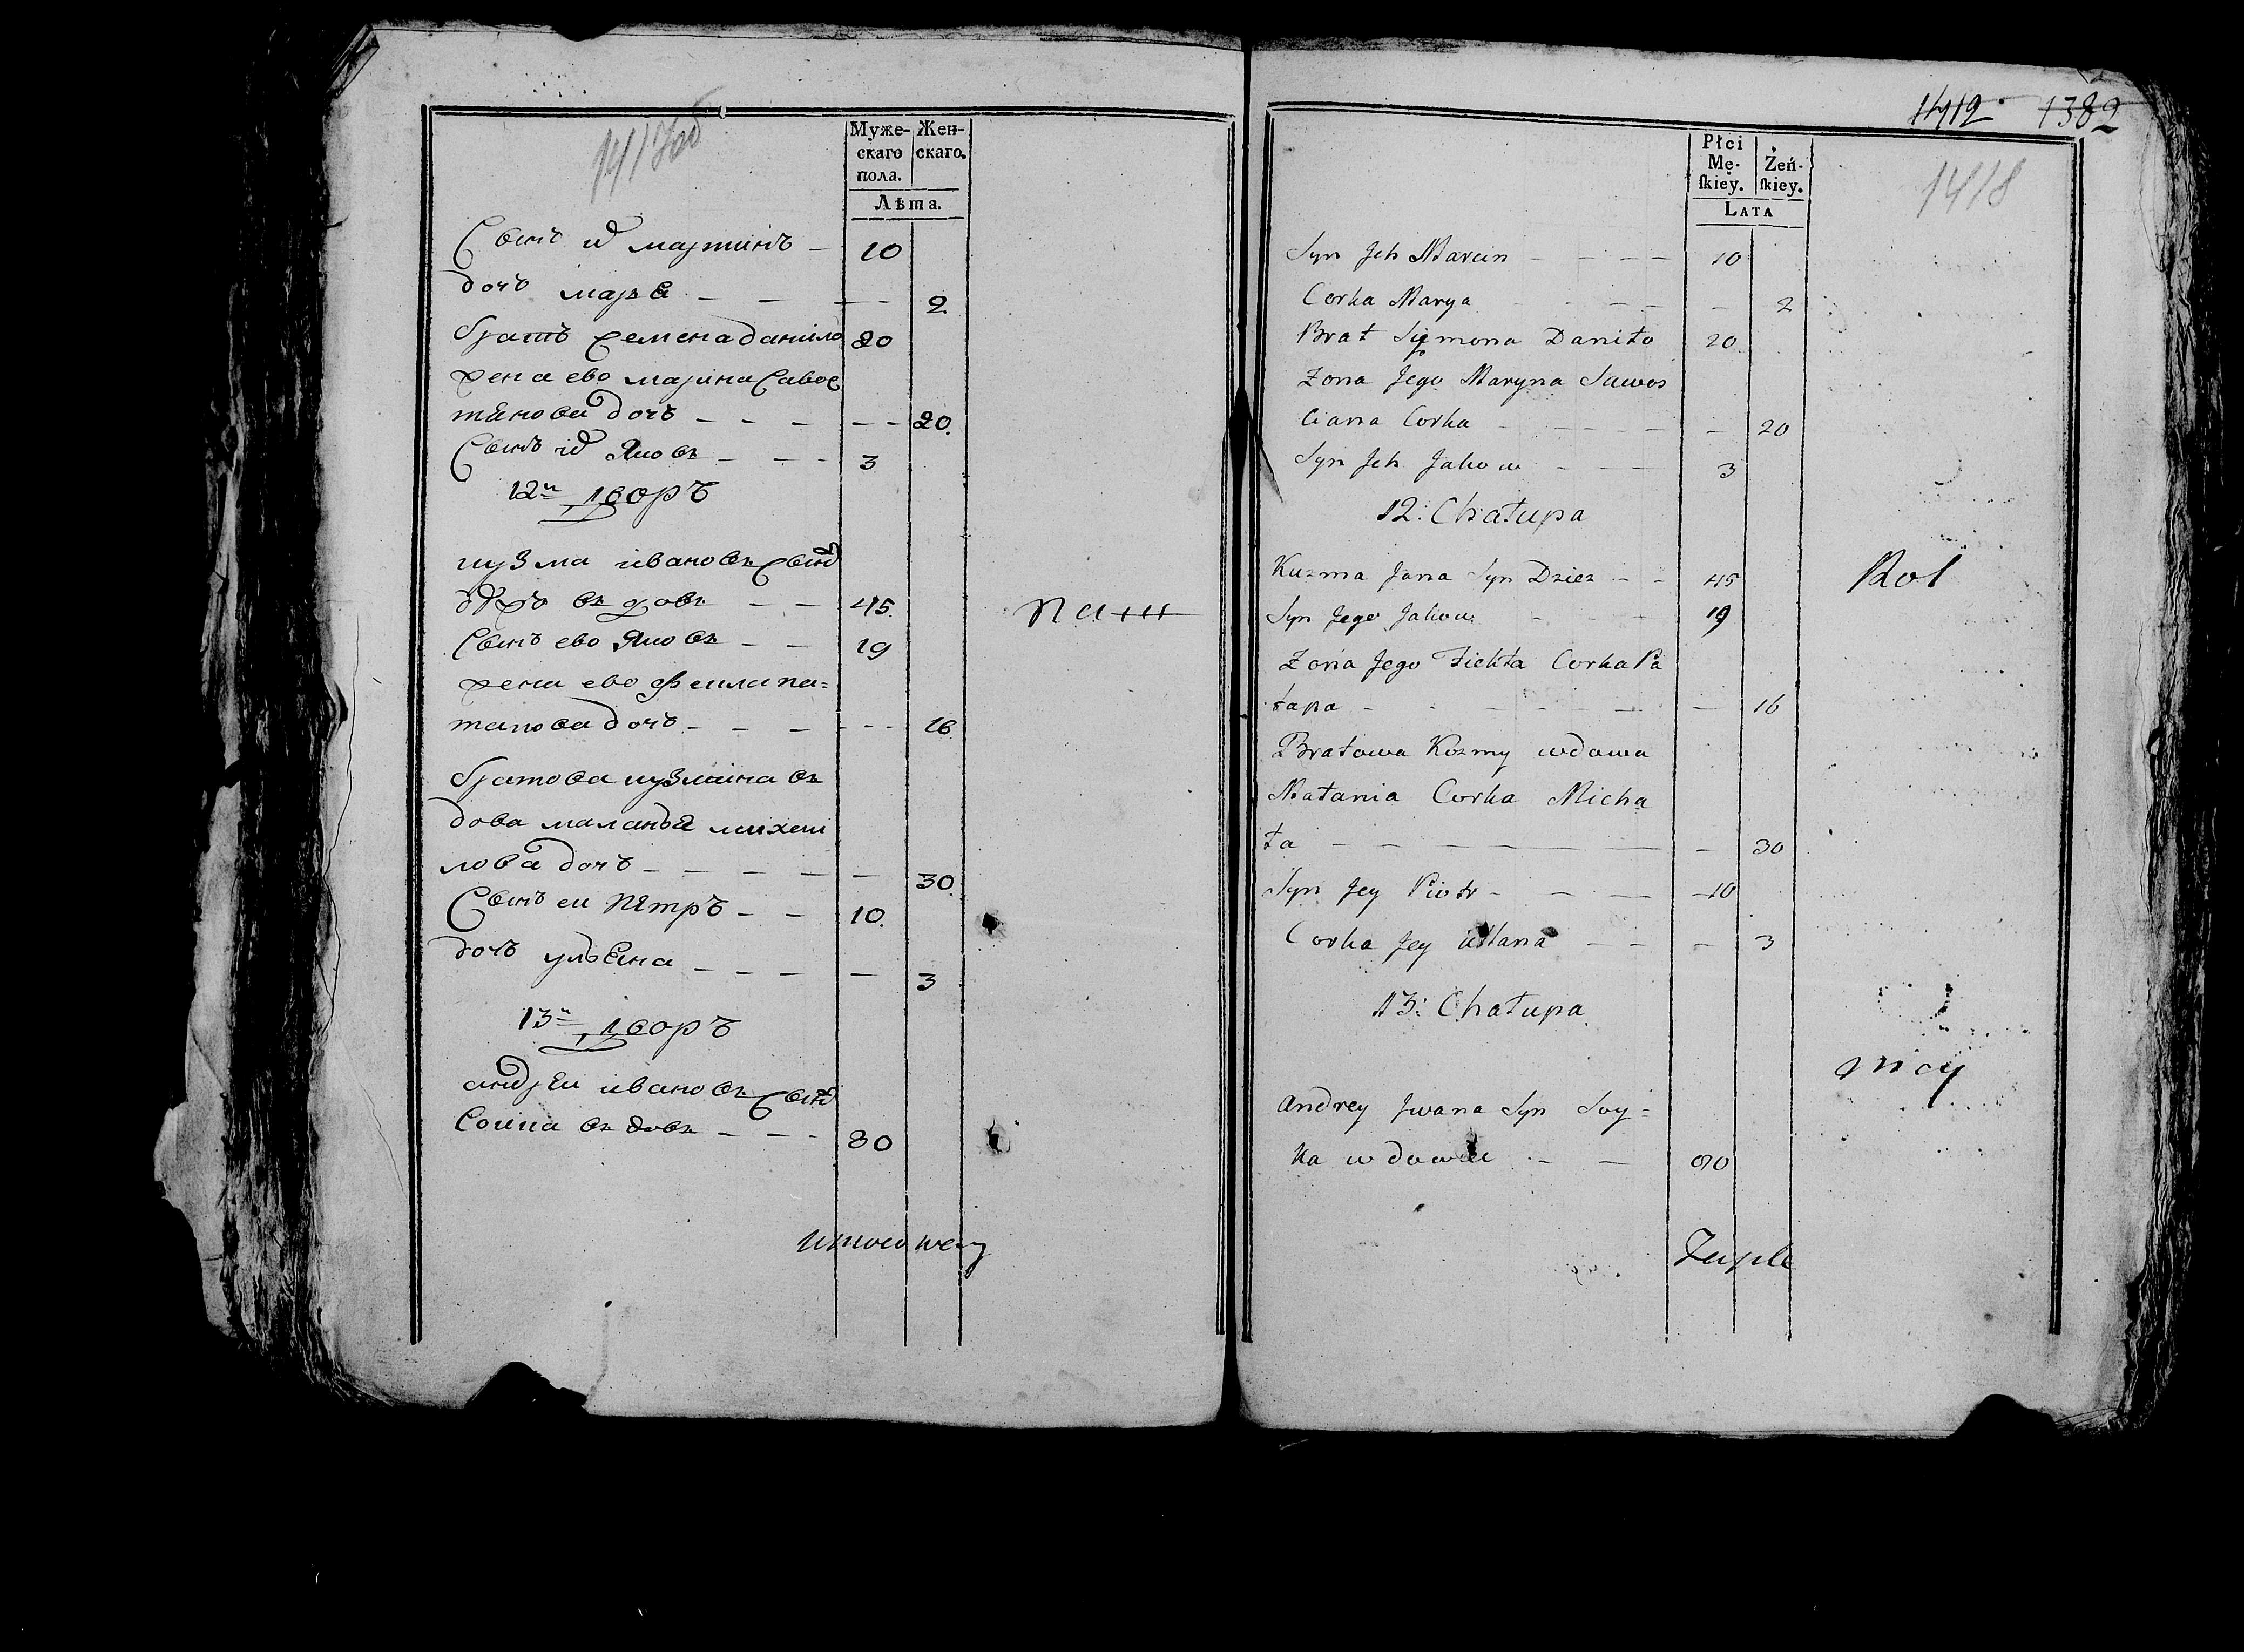 1417об
Муже- Жен-
скаго скаго.
пола.
Лѣта.
Сынъ их мартинъ — 10
дочъ маръя — — — 2.
братъ семена данило 20
жена ево марина савос
тянова дочъ — — — 20.
Сынъ их яковъ — — 3
12й дворъ
кузма ивановъ сынъ
— — 45.
паш
Сынъ ево яковъ — — 19
жена ево фекла па=
тапова дочъ — — — 16
братова кузмина в
дова маланъя михаи
лова дочъ — — — 30.
Сынъ еи петръ — — 10.
дочъ улъяна — — — 3
13й дворъ
андреи ивановъ сынъ
Соика вдовъ — — — 80
1412. 1382
1418
Płci
Mę- Żeń-
skiey. skiey.
LATA
Syn Jch Marcin — — — 10
Corka Marya — — — 2
Brat Siemona Daniło 20
Zona Jego Maryna Sawos
ciana Corka — — — 20
Syn Jch Jakow — — 3
12: Chałupa
Kuzma Jana Syn Dziez — — 45
Rol
Syn Jego Jakow — — 19
Zona Jego Fiekła Corka Pa
tapa — — — — 16
Bratowa Kozmy wdowa
Małania Corka Micha
ła — — — — 30
Syn Jey Piotr — — — 10
Corka Jey Ullana — — — 3
13: Chałupa
nicy
Andrey Jwana Syn Soy=
ka wdowiec — — 80